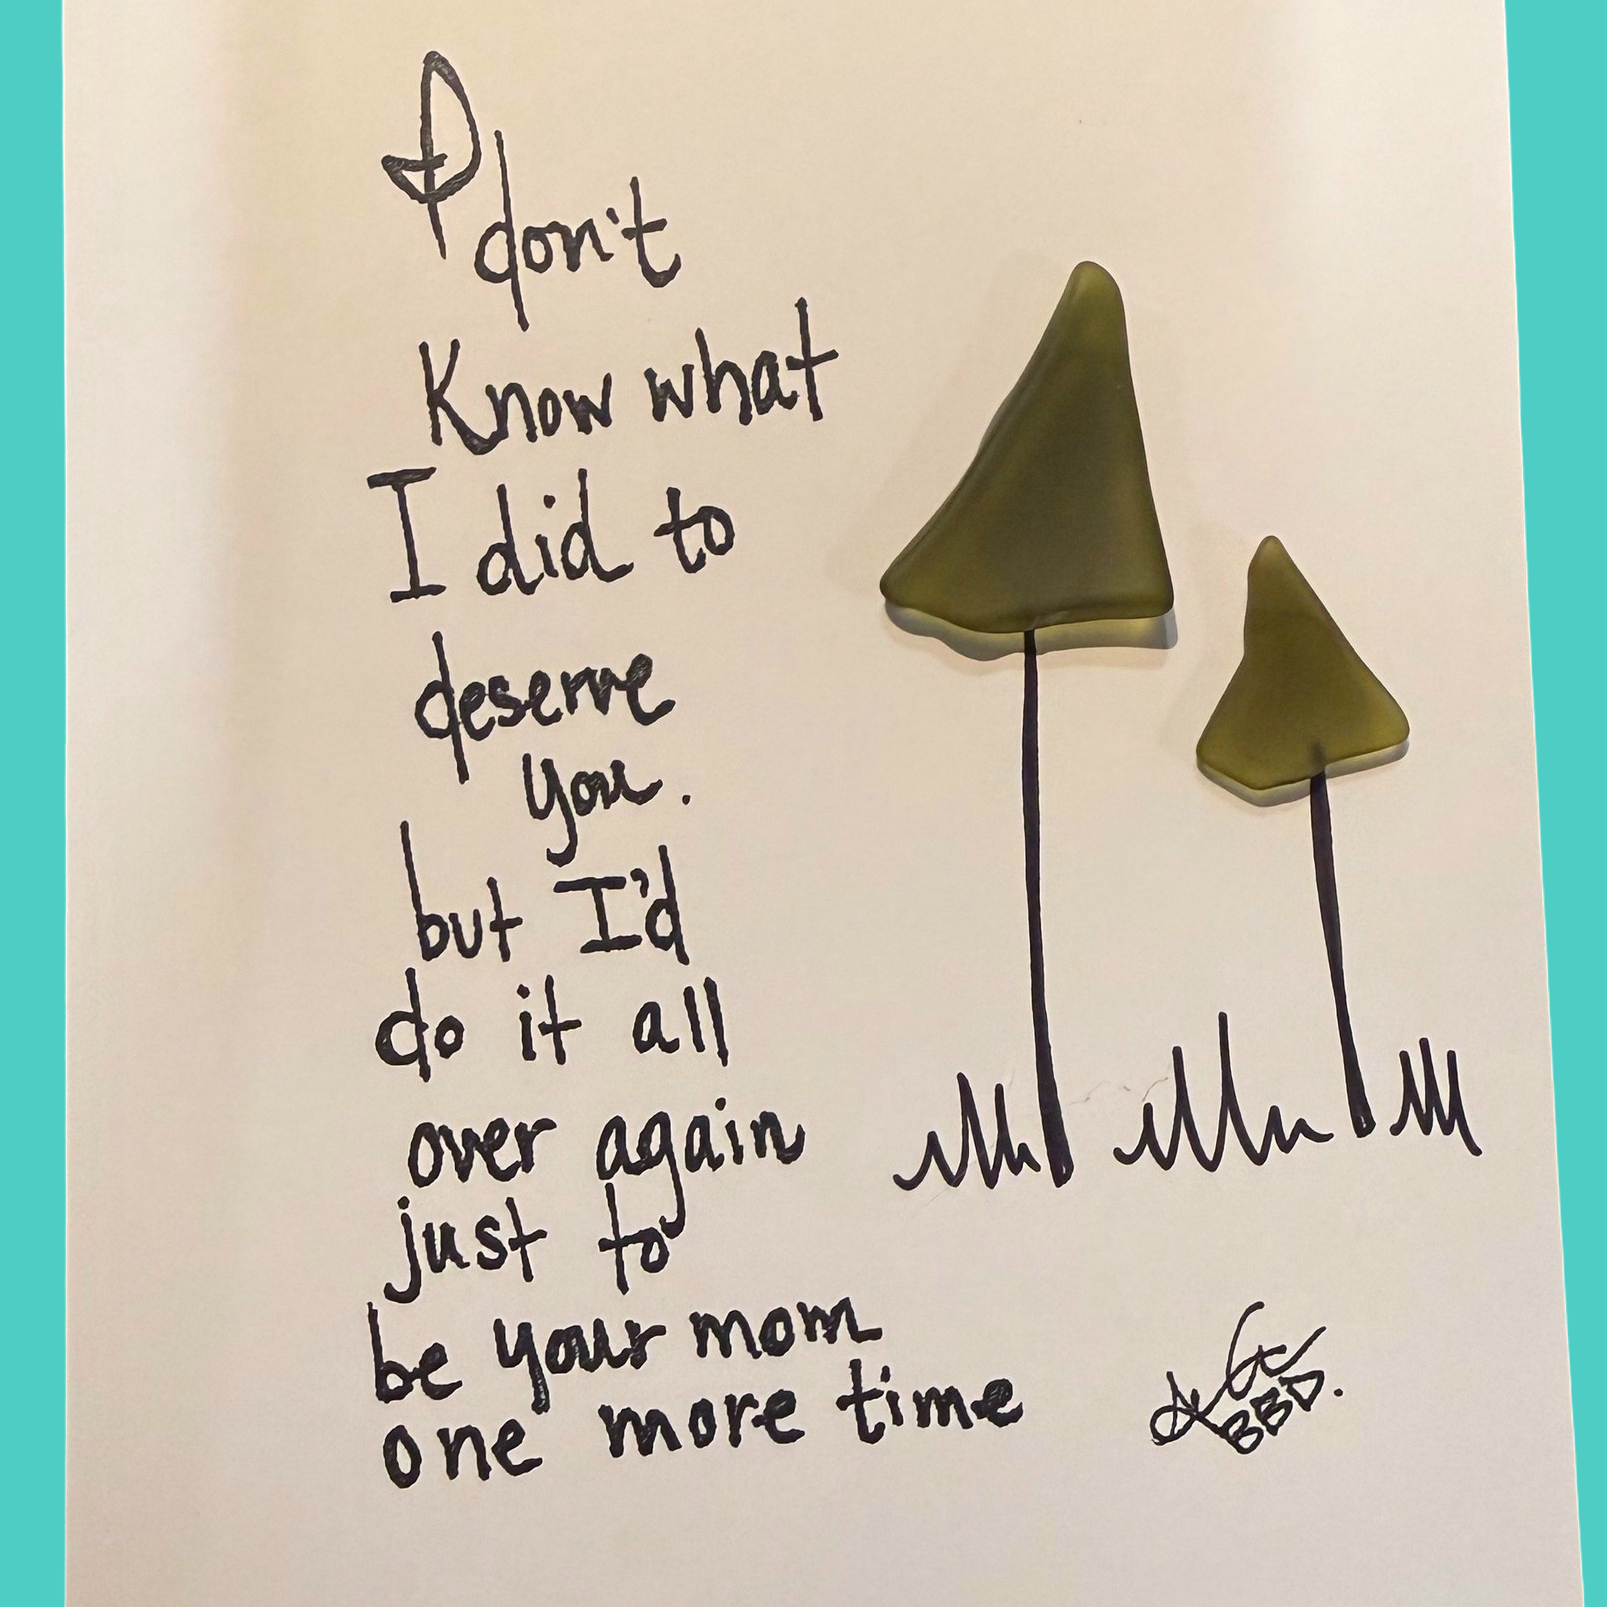 I
don't
Know what
I did to
deserve
you.
but I'd
do it all
over again
just to
be your mom
one more time
BBD.